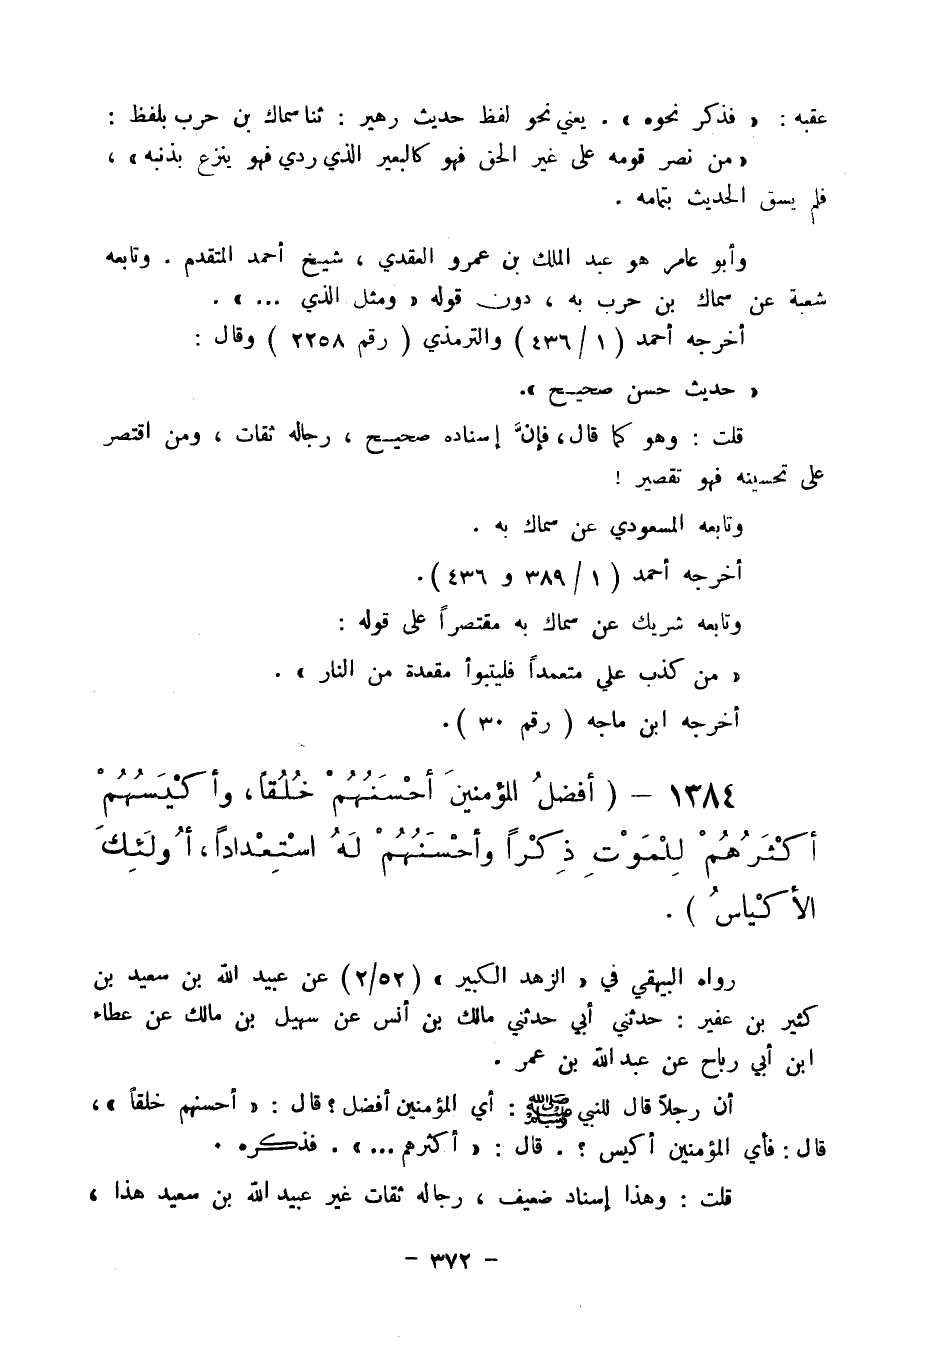 عقبه : « فذكر نحوه » . يعني نحو لفظ حديث زهير : ثنا سماك بن حرب بلفظ :
« من نصر قومه على غير الحق فهو كالبعير الذي ردي فهو ينزع بذنبه » ،
فلم يسق الحديث بتمامه .
وأبو عامر هو عبد الملك بن عمرو العقدي ، شيخ أحمد المتقدم . وتابعه
شعبة عن سماك بن حرب به ، دون قوله « ومثل الذي ... » .
أخرجه أحمد ( ١ / ٤٣٦ ) والترمذي ( رقم ٢٢٥٨ ) وقال :
« حديث حسن صحيح ».
قلت : وهو كما قال ، فإنَّ إسناده صحيح ، رجاله ثقات ، ومن اقتصر
على تحسينه فهو تقصير !
وتابعه المسعودي عن سماك به .
أخرجه أحمد ( ١ / ٣٨٩ و ٤٣٦ ).
وتابعه شريك عن سماك به مقتصراً على قوله :
« من كذب علي متعمداً فليتبوأ مقعدة من النار » .
أخرجه ابن ماجه ( رقم ٣٠ ).
١٣٨٤ – ( أفضلُ المؤمنينَ أحْسَنُهُمْ خُلُقاً، وأكْيَسُهُمْ
أكْثَرُهُمْ لِلْمَوْتِ ذِكْراً وأحْسَنُهُمْ لَهُ اسْتِعْداداً، أُولَئِكَ
الأكْياسُ ) .
رواه البيهقي في « الزهد الكبير » (٢/٥٢) عن عبيد الله بن سعيد بن
كثير بن عفير : حدثني أبي حدثني مالك بن أنس عن سهيل بن مالك عن عطاء
ابن أبي رباح عن عبدالله بن عمر .
أن رجلاً قال للنبي ﷺ : أي المؤمنين أفضل ؟ قال : « أحسنهم خلقاً » ،
قال : فأي المؤمنين أكيس ؟ . قال : « أكثرهم ... » . فذكره .
قلت : وهذا إسناد ضعيف ، رجاله ثقات غير عبيد الله بن سعيد هذا ،
– ٣٧٢ –